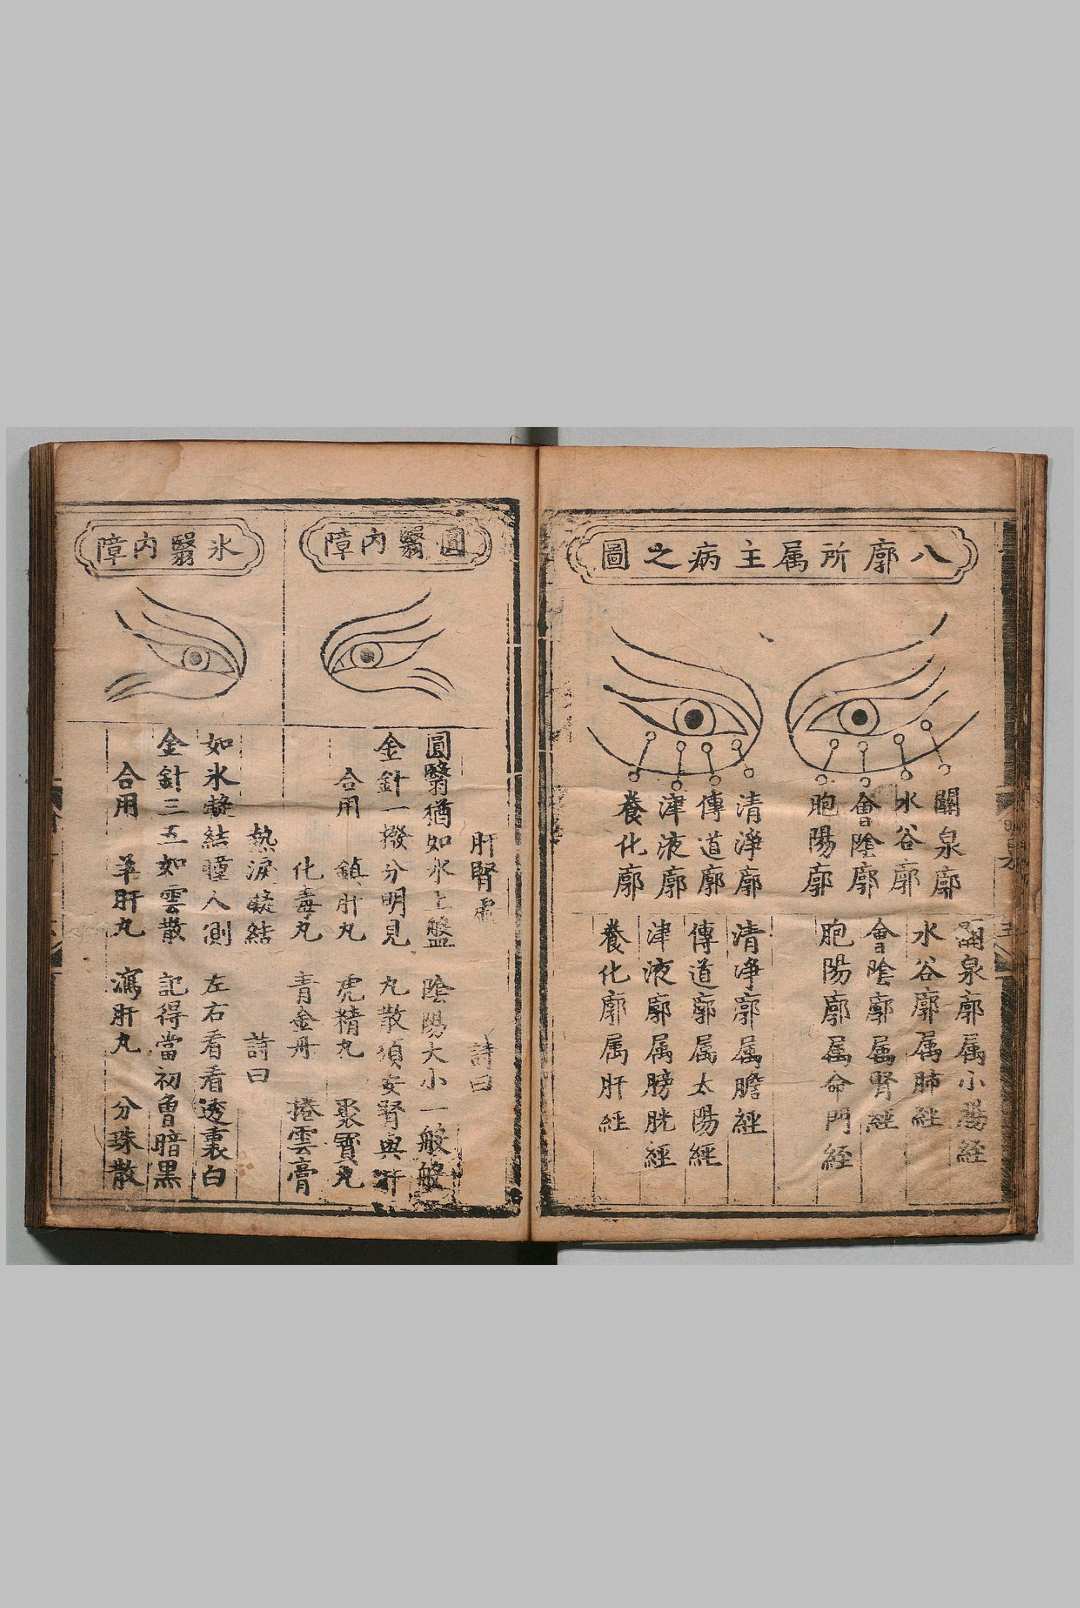 八廓所属主病之圖
關泉廓
水谷廓
會陰廓
胞陽廓
清淨廓
傳道廓
津液廓
養化廓
關泉廓属小腸経
水谷廓属肺経
會陰廓属腎経
胞陽廓属命門経
清淨廓属膽経
傳道廓属太陽経
津液廓属膀胱経
養化廓属肝経
圓翳内障
肝腎虛 詩曰
圓翳猶如氷上盤 陰陽大小一般般
金針一撥分明見 丸散須安腎與肝
合用 鎮肝丸 虎精丸 聚寳丸
化毒丸 青金丹 捲雲膏
氷翳内障
熱淚凝結 詩曰
如氷凝結瞳人側 左右看看透裏白
金針三五如雲散 記得當初曾暗黒
合用 羊肝丸 瀉肝丸 分珠散